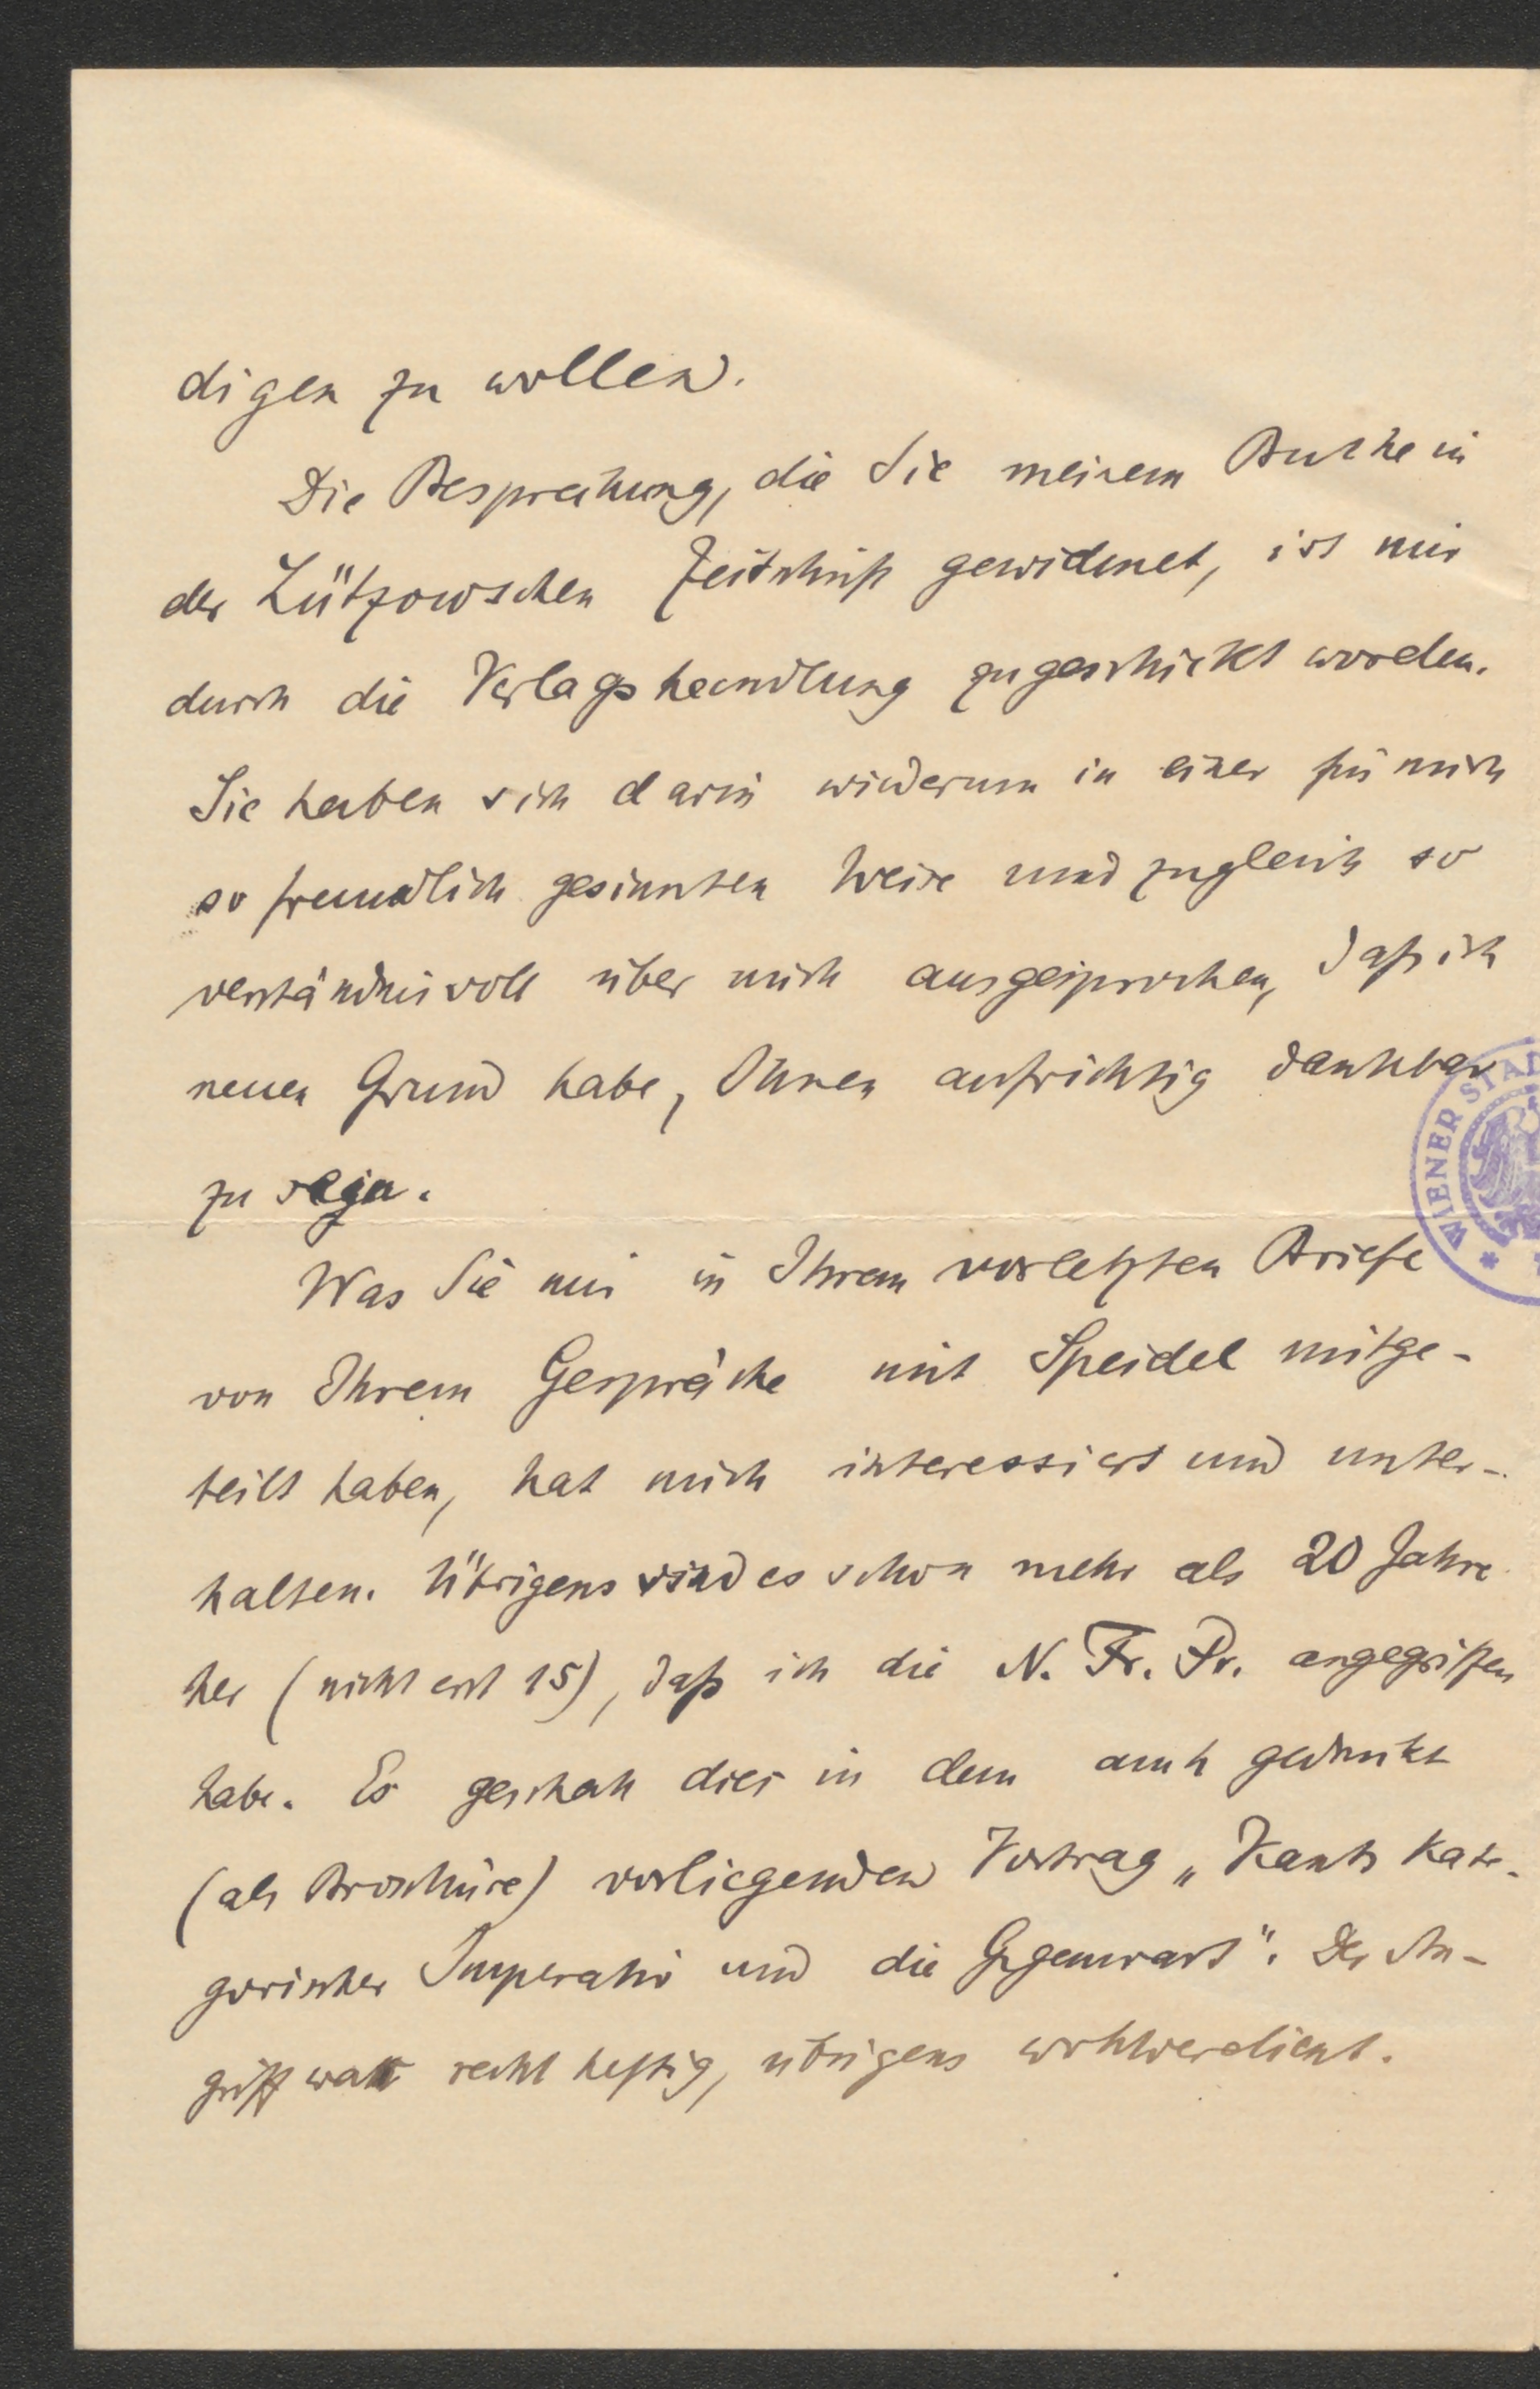 digen zu wollen.
Die Besprechung, die Sie meinem Buche in
der Lützowschen Zeitschrift gewidmet, ist mir
durch die Verlagshandlung zugeschickt worden.
Sie haben sich darin wiederum in einer für mich
so freundlich gesinnten Weise und zugleich so
verständnisvoll über mich ausgesprochen, daß ich
neuen Grund habe, Ihnen aufrichtig dankbar
zu sein.
Was Sie mir in Ihrem vorletzten Briefe
von Ihrem Gespräche mit Speidel mitge-
teilt haben, hat mich interessiert und unter-
halten. Übrigens sind es schon mehr als 20 Jahre
her (nicht erst 15), daß ich die N. Fr. Pr. angegriffen
habe. Es geschah dies in dem auch gedruckt
(als Broschüre) vorliegenden Vortrag „Kants kate-
gorischer Imperativ und die Gegenwart“. Der An-
griff war recht heftig, übrigens wohlverdient.
WIENER STAD